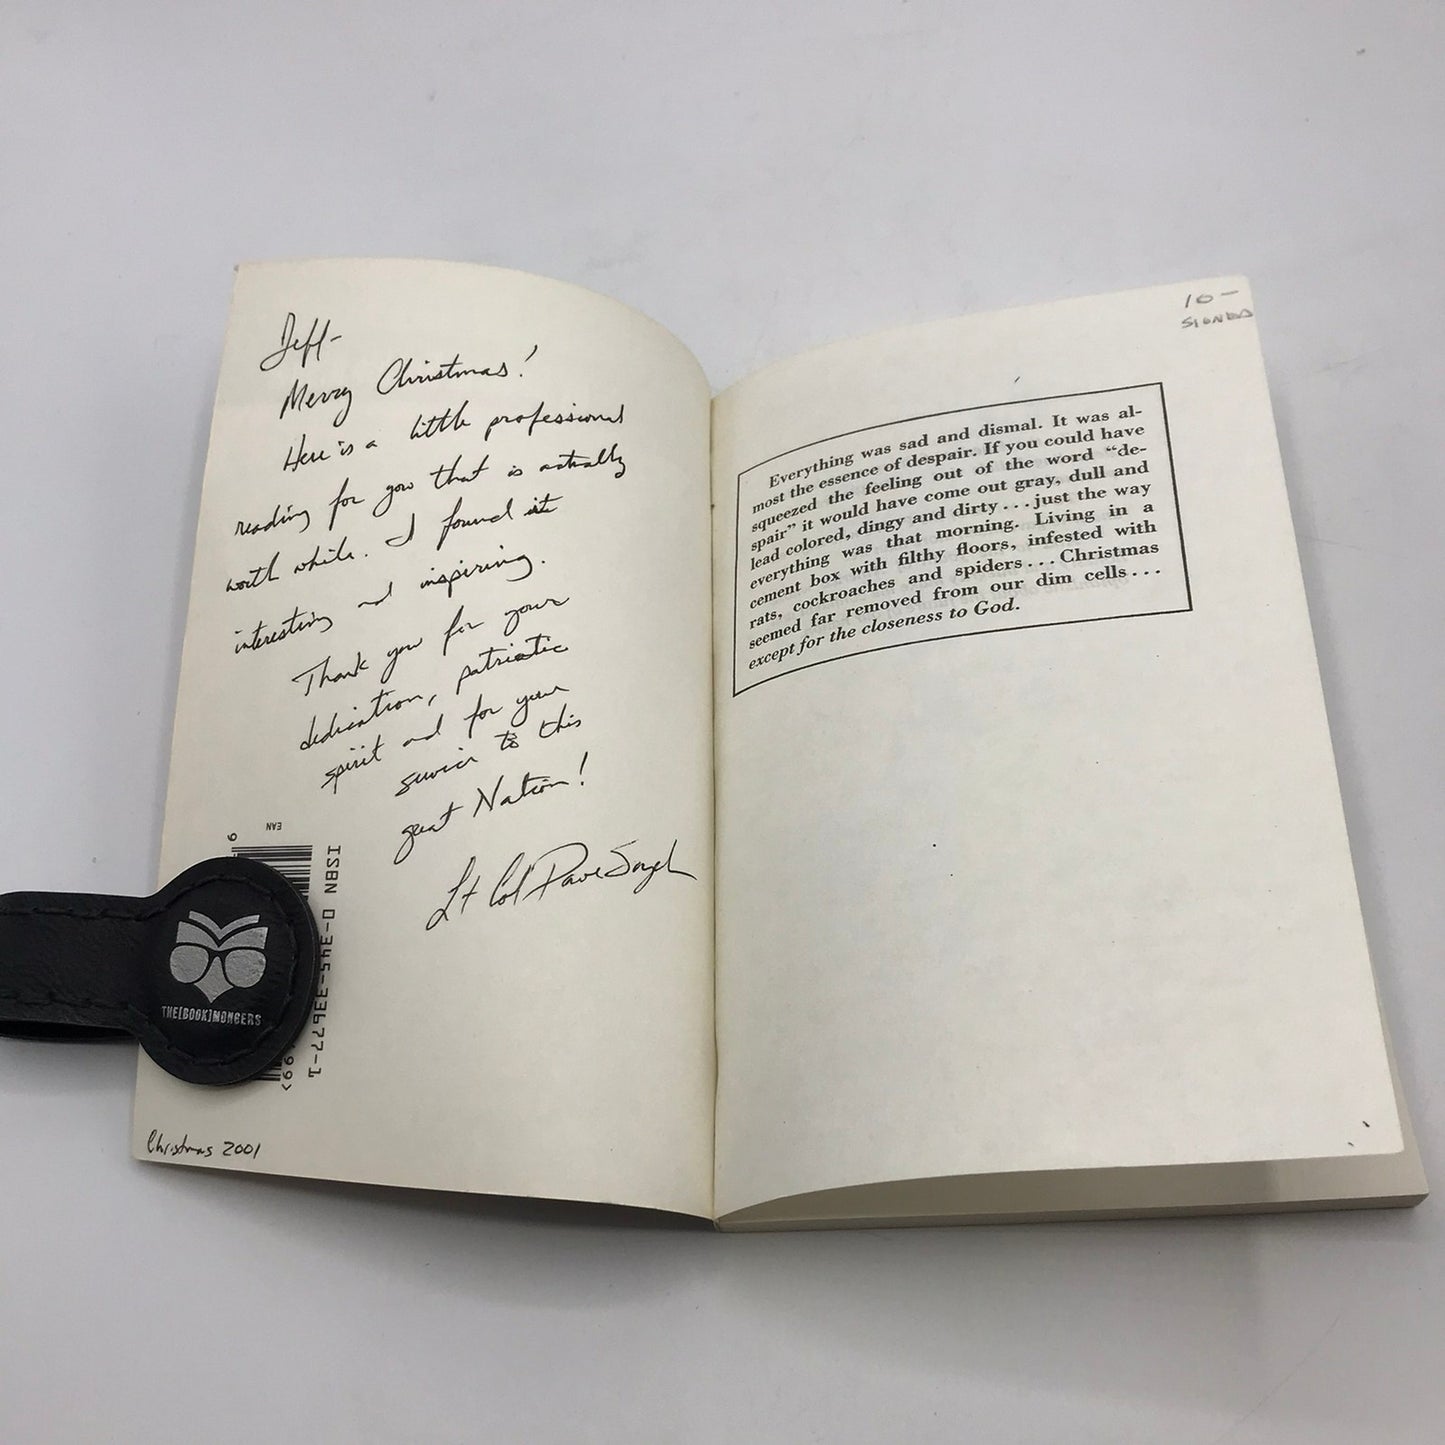 Jeff-
Merry Christmas!
Here is a little professional
reading for you that is actually
worth while. I found it
interesting and inspiring.
Thank you for your
dedication, patriotic
spirit and for your
service to this
great Nation!
Lt Col Dave
EAN
9
ISBN 0-345-33677-1
99>
THE[BOOK]MONGERS
Christmas 2001
10-
SIGNED
Everything was sad and dismal. It was al-
most the essence of despair. If you could have
squeezed the feeling out of the word “de-
spair” it would have come out gray, dull and
lead colored, dingy and dirty . . . just the way
everything was that morning. Living in a
cement box with filthy floors, infested with
rats, cockroaches and spiders . . . Christmas
seemed far removed from our dim cells . . .
except for the closeness to God.